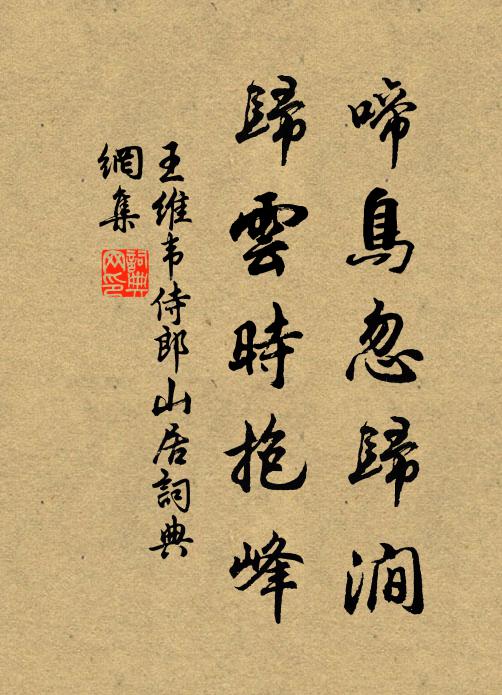 啼鳥忽歸澗
歸雲時抱峰
王維韦侍郎山居詞典
網集
詞典
网印